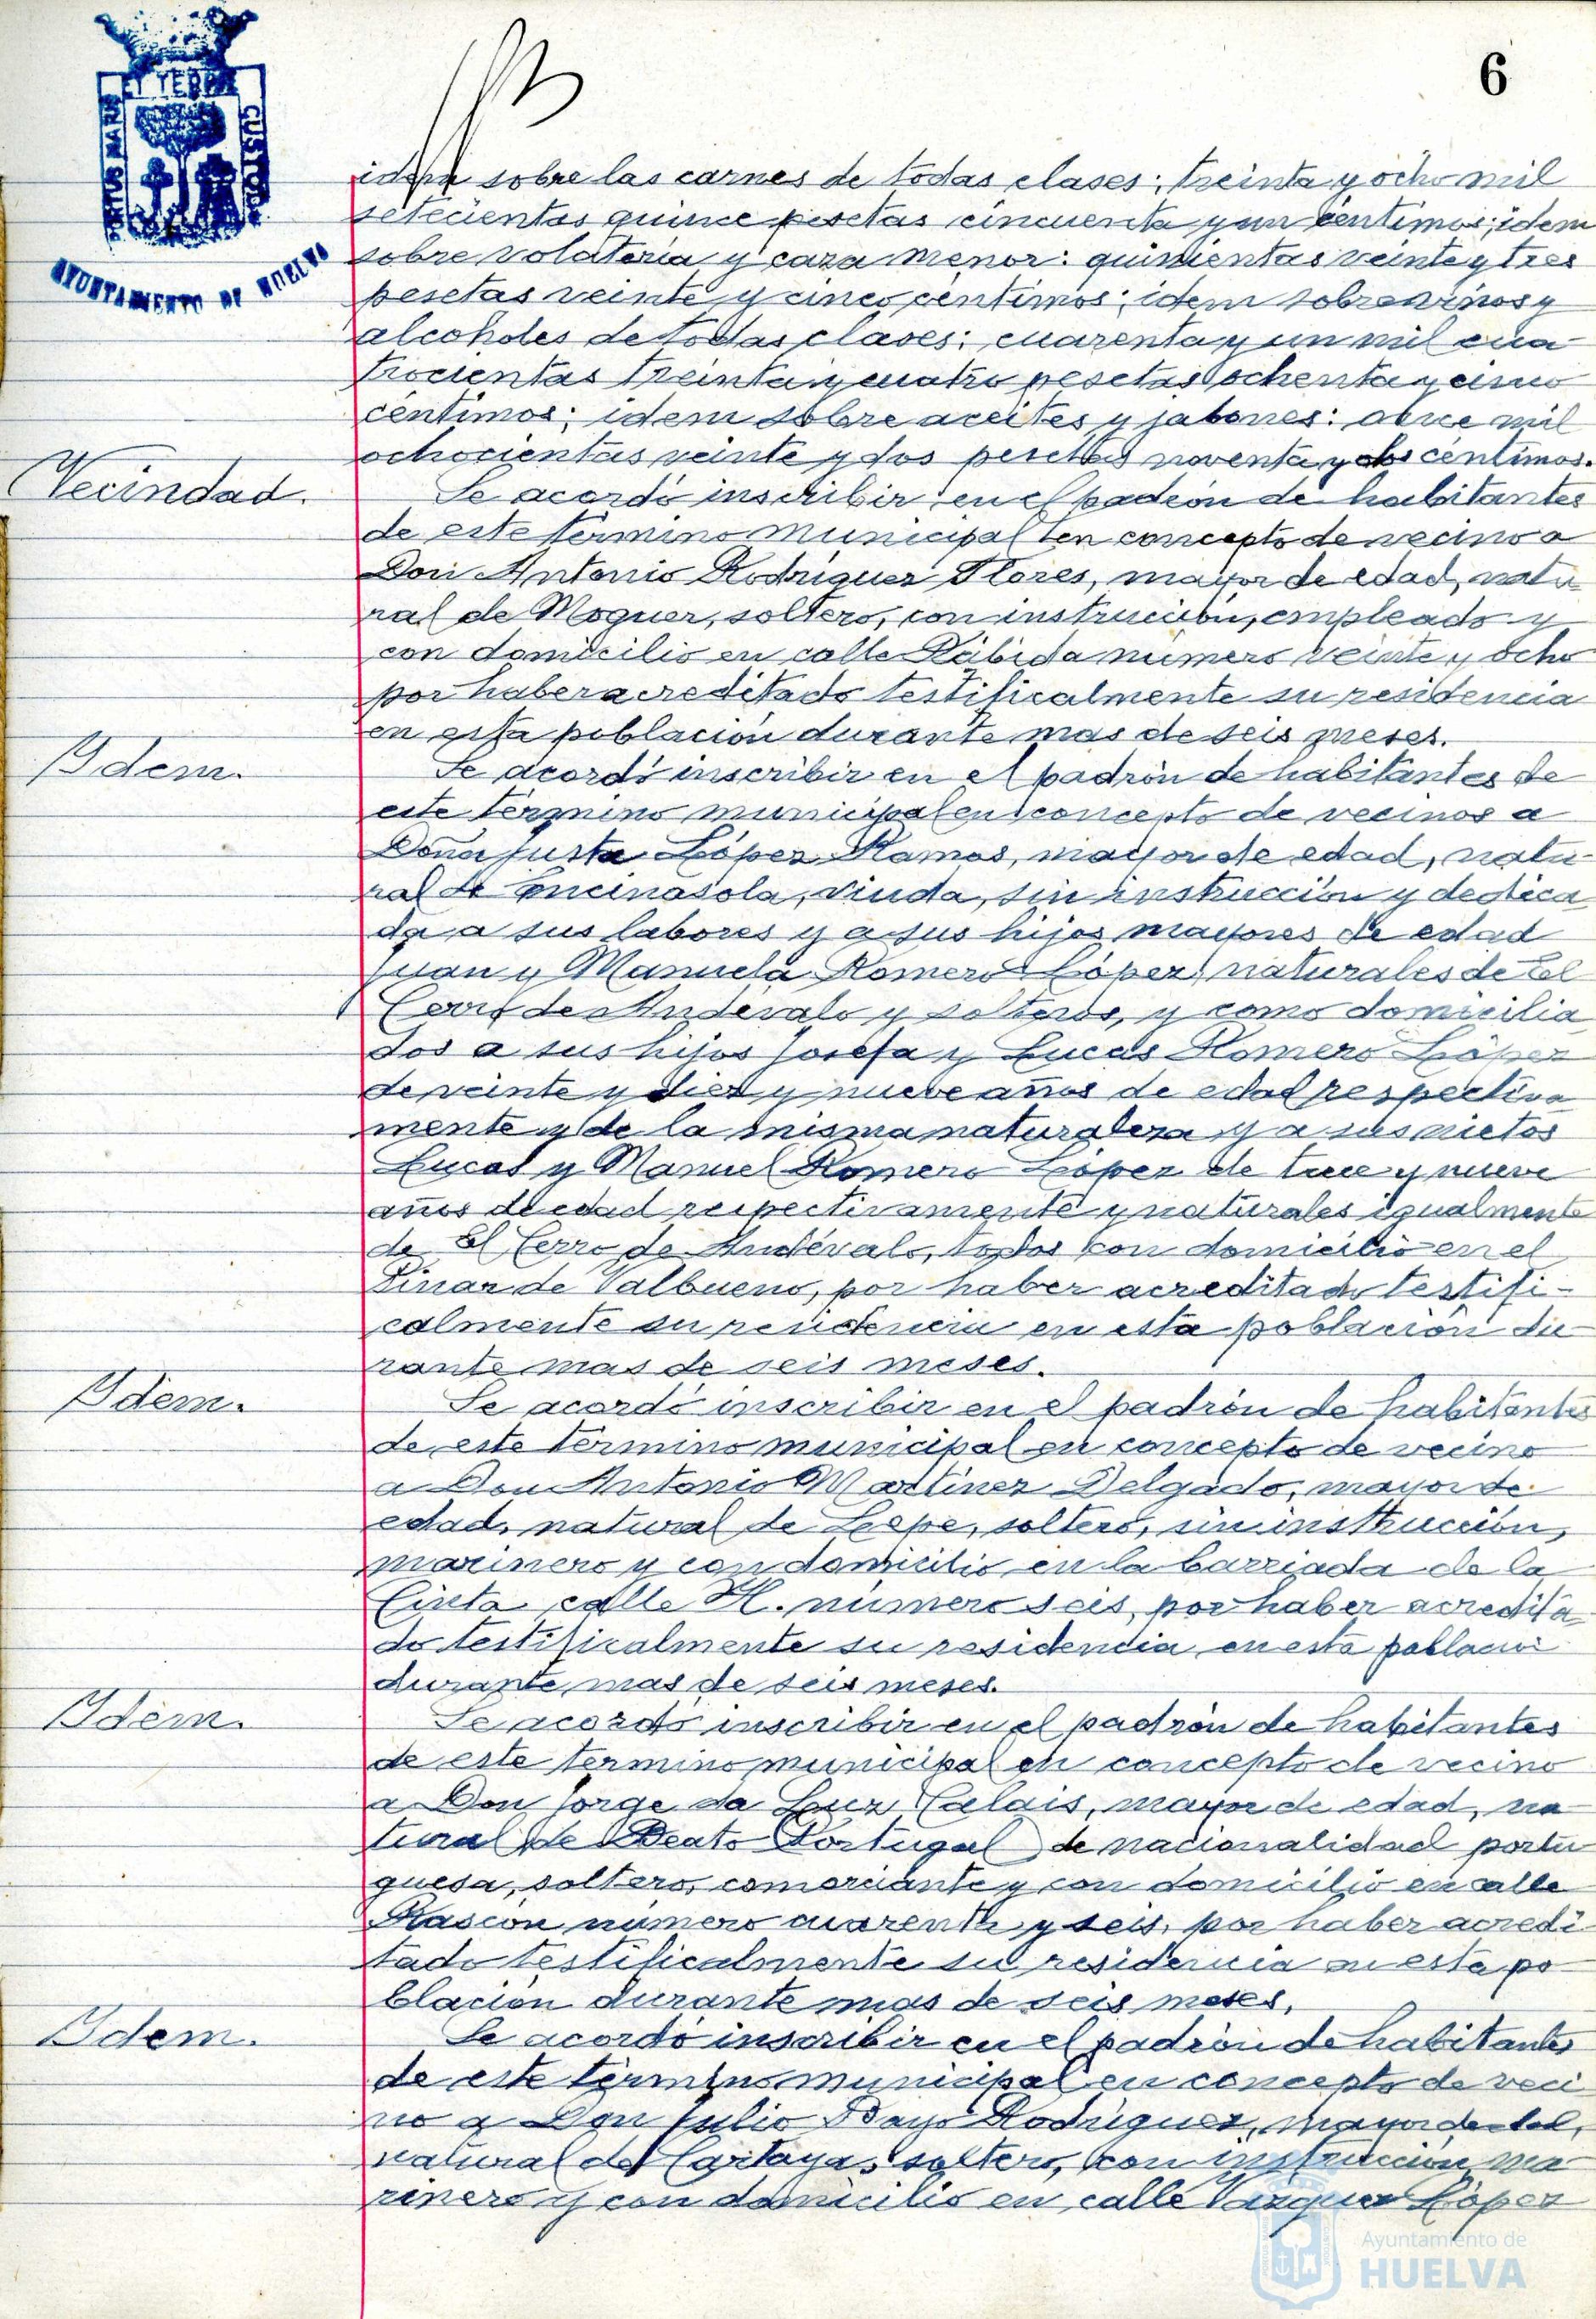 6
ET TERRÆ
PORTUS MARIS
CUSTODIA
AYUNTAMIENTO DE HUELVA
idem sobre las carnes de todas clases; treinta y ocho mil
setecientas quince pesetas cincuenta y un centimos; idem
sobre volateria y caza menor: quinientas veinte y tres
pesetas veinte y cinco centimos; idem sobre vinos y
alcoholes de todas clases; cuarenta y un mil cua
trocientas treinta y cuatro pesetas ochenta y cinco
centimos; idem sobre aceites y jabones: once mil
ochocientas veinte y dos pesetas noventa y dos centimos.
Vecindad.
Se acordó inscribir en el padrón de habitantes
de este término municipal en concepto de vecino a
Don Antonio Rodriguez Flores, mayor de edad, natu
ral de Moguer, soltero, con instrucción, empleado y
con domicilio en calle Rábida número veinte y ocho
por haber acreditado testificalmente su residencia
en esta población durante mas de seis meses.
Idem.
Se acordó inscribir en el padrón de habitantes de
este término municipal en concepto de vecinos a
Doña Justa López Ramos, mayor de edad, natu-
ral de Encinasola, viuda, sin instrucción y dedica
da a sus labores y a sus hijos mayores de edad
Juan y Manuela Romero López, naturales de El
Cerro de Andévalo y solteros, y como domicilia
dos a sus hijos Josefa y Lucas Romero López
de veinte y diez y nueve años de edad respectiva
mente y de la misma naturaleza y a sus nietos
Lucas y Manuel Romero López de trece y nueve
años de edad respectivamente y naturales igualmente
de El Cerro de Andévalo, todos con domicilio en el
Pinar de Valbueno, por haber acreditado testifi-
calmente su residencia en esta población du-
rante mas de seis meses.
Idem.
Se acordó inscribir en el padrón de habitantes
de este término municipal en concepto de vecino
a Don Antonio Martinez Delgado, mayor de
edad, natural de Lepe, soltero, sin instrucción,
marinero y con domicilio en la barriada de la
Cinta calle H. número seis, por haber acredita-
do testificalmente su residencia en esta poblacion
durante mas de seis meses.
Idem.
Se acordó inscribir en el padrón de habitantes
de este termino municipal en concepto de vecino
a Don Jorge da Luz Calais, mayor de edad, na
tural de Beato Portugal) de nacionalidad portu
guesa, soltero, comerciante y con domicilio en calle
Rascón número cuarenta y seis, por haber acredi-
tado testificalmente su residencia en esta po
blación durante mas de seis meses.
Idem.
Se acordó inscribir en el padrón de habitantes
de este término municipal en concepto de veci
no a Don Julio Bayo Rodriguez, mayor de edad,
natural de Cartaya, soltero, con instrucción, ma
rinero y con domicilio en calle Vazquez López
Ayuntamiento de
HUELVA